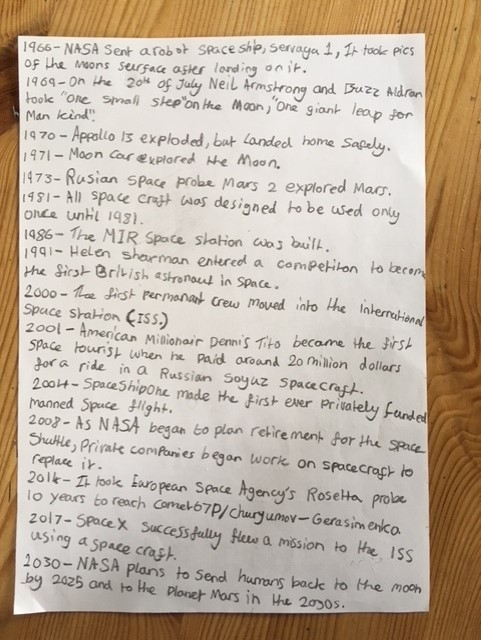 1966-NASA sent a robot spaceship, Servaya 1, It took pics
of the moons seurface after landing on it.
1969-On the 20th of July Neil Armstrong and Buzz Aldran
took "one small step" on the Moon, "One giant leap for
Man kind".
1970-Appollo 13 exploded, but landed home safely.
1971-Moon Car explored the Moon.
1973-Rusian space probe Mars 2 explored Mars.
1981-All space craft was designed to be used only
once until 1981.
1986-The MIR space station was built.
1991-Helen sharman entered a competiton to become
the first British astronaut in space.
2000-The first permanant crew moved into the international
Space station (ISS)
2001-American Millionair Dennis Tito became the first
space tourist when he paid around 20 million dollars
for a ride in a Russian Soyuz spacecraft.
2004-SpaceShipOne made the first ever privately funded
manned space flight.
2008-As NASA began to plan retirement for the space
Shuttle, Private companies began work on spacecraft to
replace it.
2014-It took European Space Agency's Rosetta probe
10 years to reach Comet 67P/Churyumov-Gerasimenko
2017-SpaceX successfully flew a mission to the ISS
using a space craft.
2030-NASA plans to send humans back to the moon
by 2025 and to the Planet Mars in the 2030s.